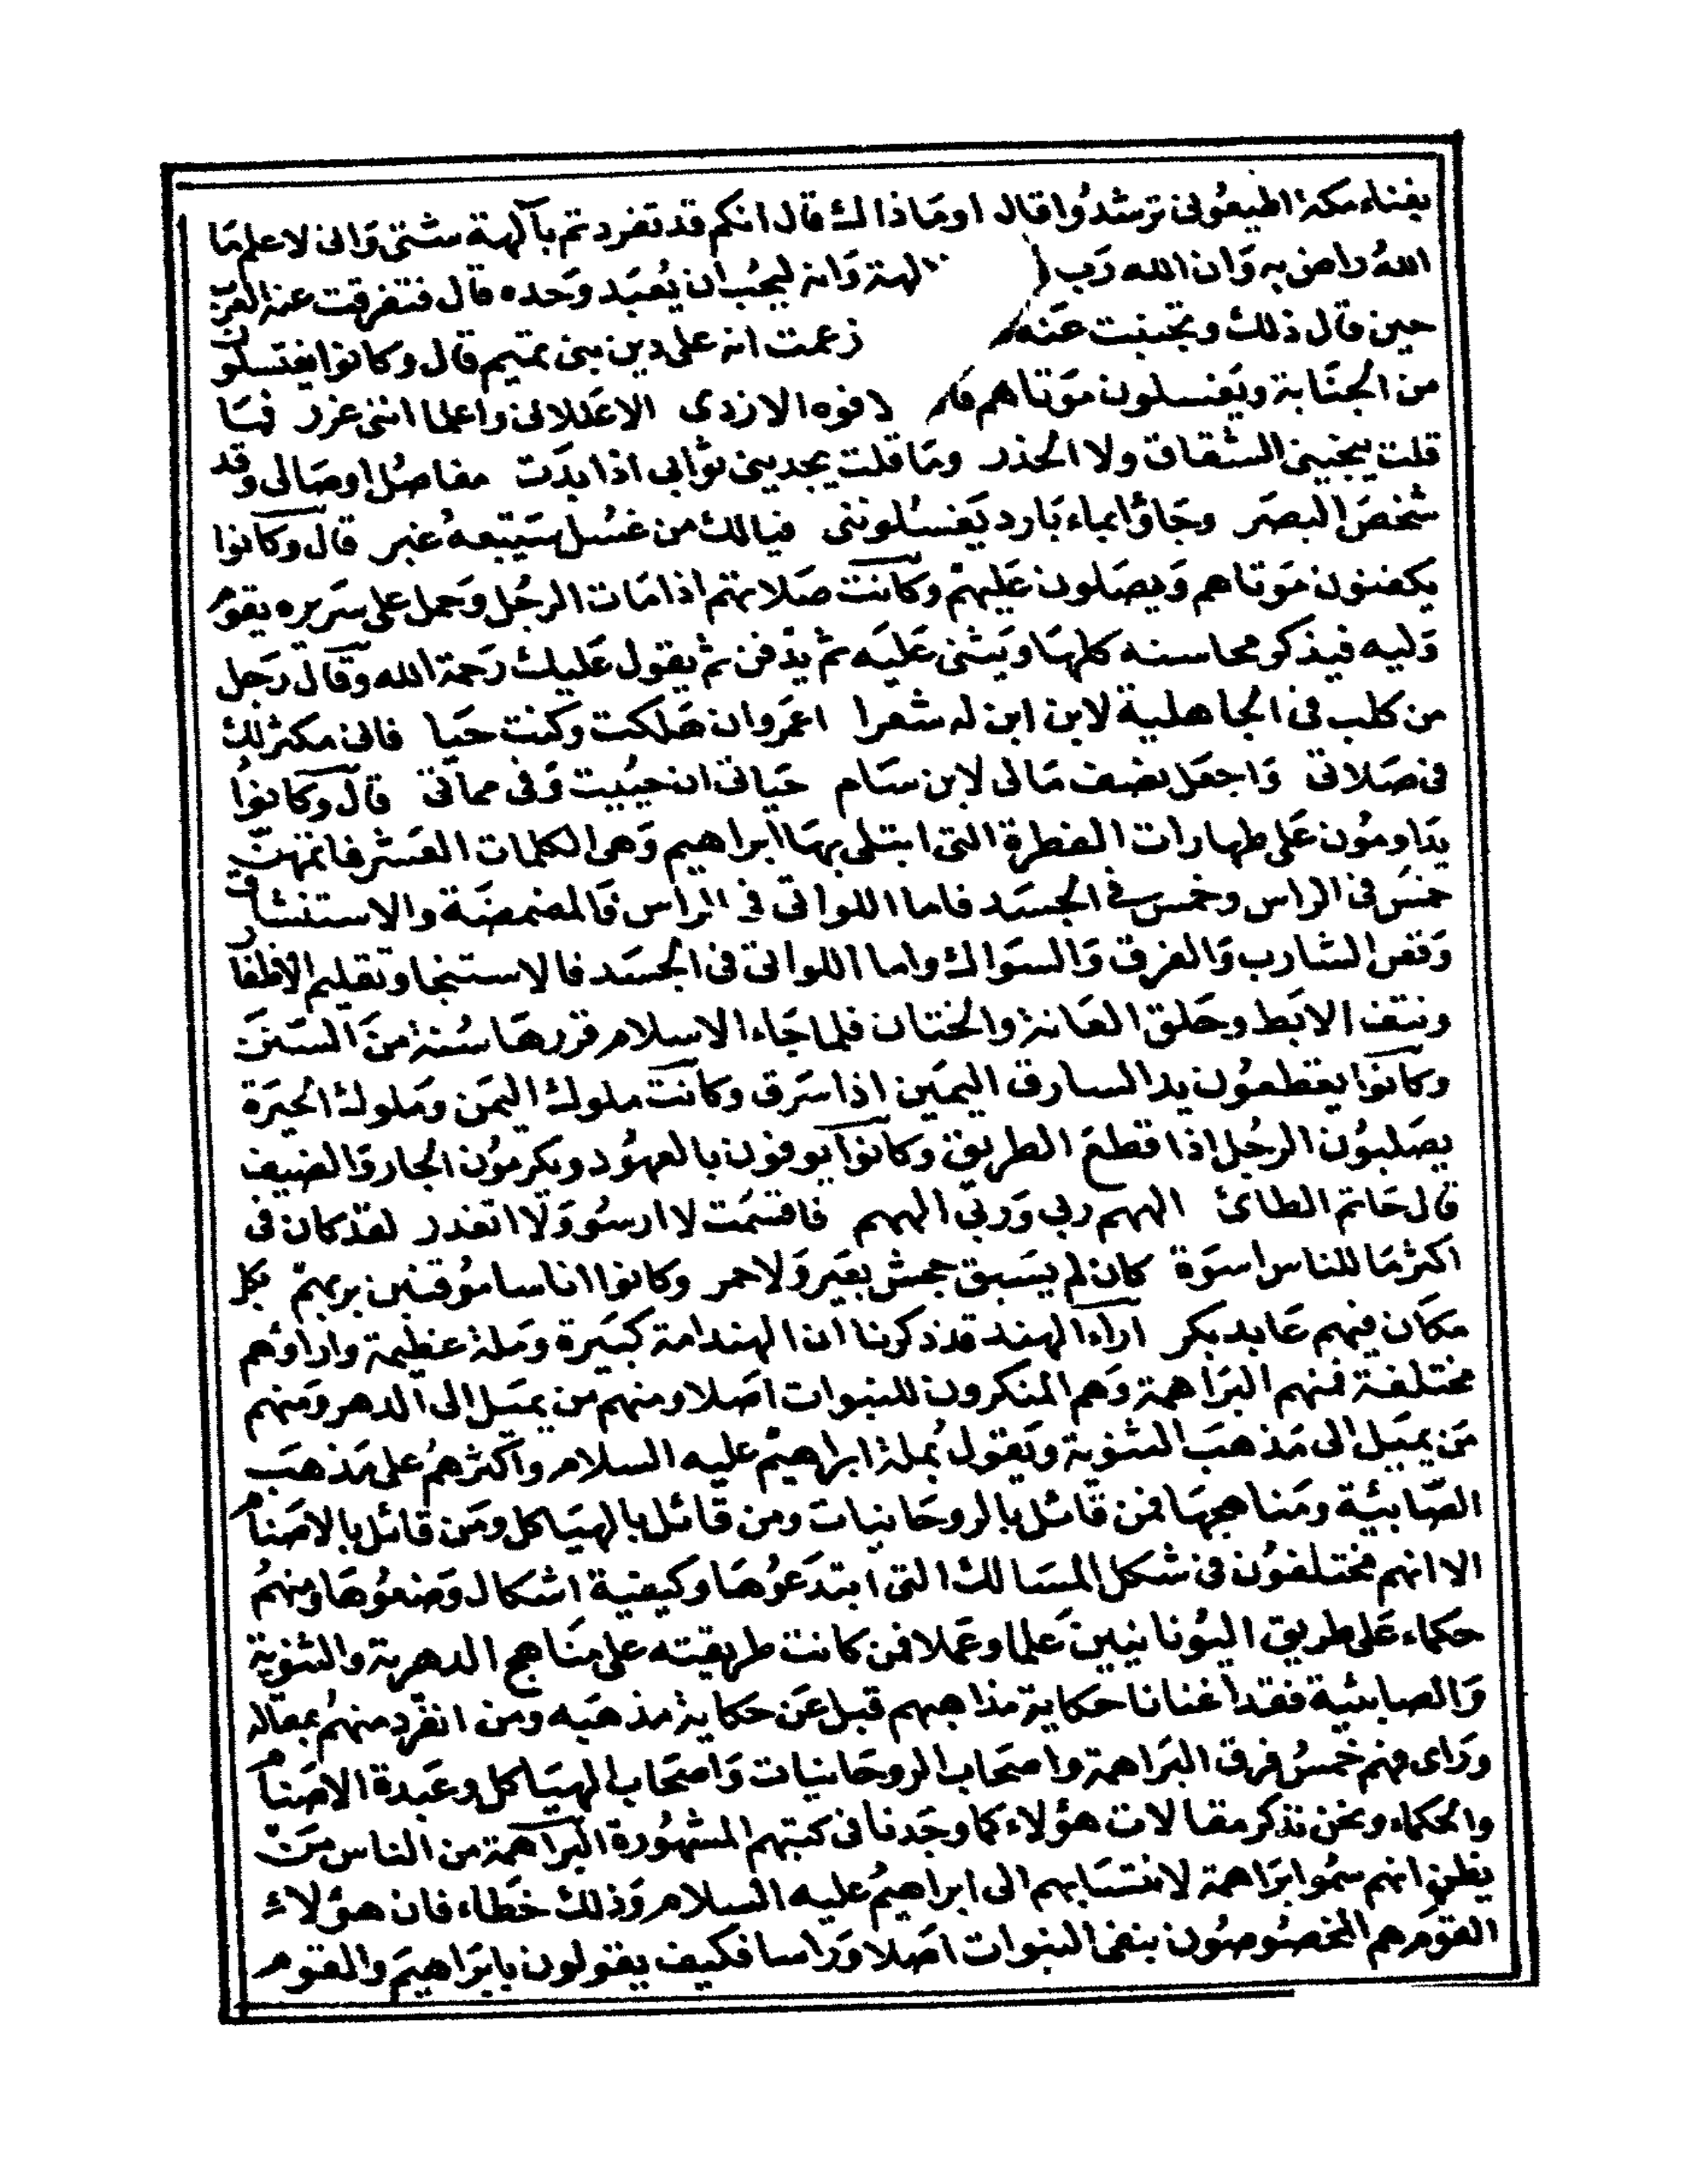 بفناء مكة اطيعونى ترشدوا قال اوما ذالك قال انكم قد تفردتم بآلهة شتى وانى لاعلم ما
الله راض به وان الله رب لهة وانه ليحب ان يعبد وحده قال فتفرقت عنه العرب
حين قال ذلك وتجنبت عنه زعمت انه على دين بنى تميم قال وكانوا يغتسلون
من الجنابة ويغسلون موتاهم لافوه الازدى الا عللانى واعلما اننى غرر فما
قلت ينجينى الشقاق ولا الحذر وما قلت يجدينى ثوابى اذا بدت مفاصل اوصالى وقد
شخص البصر وجاؤا بماء بارد يغسلوننى فيالك من غسل سيتبعه غبر قال وكانوا
يكفنون موتاهم ويصلون عليهم وكانت صلاتهم اذا مات الرجل وحمل على سريره يقوم
وليه فيذكر محاسنه كلها ويثنى عليه ثم يدفن ثم يقول عليك رحمة الله وقال رجل
من كلب فى الجاهلية لابن ابن له شعرا اعمرو ان هلكت وكنت حيا فانى مكثر لك
فى صلاتى واجعل نصف مالى لابن سام حياتى ان حييت وفى مماتى قال وكانوا
يداومون على طهارات الفطرة التى ابتلى بها ابراهيم وهى الكلمات العشر فاتمهن
خمس فى الراس وخمس فى الجسد فاما اللواتى فى الراس فالمضمضة والاستنشاق
وقص الشارب والفرق والسواك واما اللواتى فى الجسد فالاستنجا وتقليم الاظفار
ونتف الابط وحلق العانة والختان فلما جاء الاسلام قررها سنة من السنن
وكانوا يقطعون يد السارق اليمين اذا سرق وكانت ملوك اليمن وملوك الحيرة
يصلبون الرجل اذا قطع الطريق وكانوا يوفون بالعهود ويكرمون الجار والضيف
قال حاتم الطائ الههم ربى وربى الههم فاقسمت لا ارسو ولا اتعذر لقد كان فى
اكثر ما للناس اسوة كان لم يسبق جحش بعير ولا حمر وكانوا اناسا موقنين بربهم بكل
مكان فيهم عابد بكر اراء الهند قد ذكرنا ان الهند امة كبيرة وملة عظيمة واراؤهم
مختلفة فمنهم البراهمة وهم المنكرون للنبوات اصلا ومنهم من يميل الى الدهر ومنهم
من يميل الى مذهب الثنوية ويقول بملة ابراهيم عليه السلام واكثرهم على مذهب
الصابئية ومناهجها فمن قائل بالروحانيات ومن قائل بالهياكل ومن قائل بالاصنام
الا انهم مختلفون فى شكل المسالك التى ابتدعوها وكيفية اشكال وضعوها ومنهم
حكماء على طريق اليونانيين علما وعملا فمن كانت طريقته على مناهج الدهرية والثنوية
والصابئية فقد اغنانا حكاية مذاهبهم قبل عن حكاية مذهبه ومن انفرد منهم بمقالة
وراى فهم خمس فرق البراهمة واصحاب الروحانيات واصحاب الهياكل وعبدة الاصنام
والحكماء ونحن نذكر مقالات هؤلاء كما وجدنا فى كتبهم المشهورة البراهمة من الناس من
يظن انهم سموا براهمة لانتسابهم الى ابراهيم عليه السلام وذلك خطاء فان هؤلاء
القوم هم المخصوصون بنفى النبوات اصلا وراسا فكيف يقولون بابراهيم والقوم